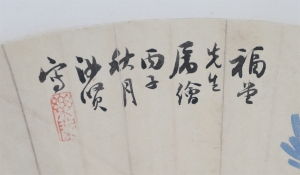 福堂
先生
属绘
丙子
秋月
沙贤
写